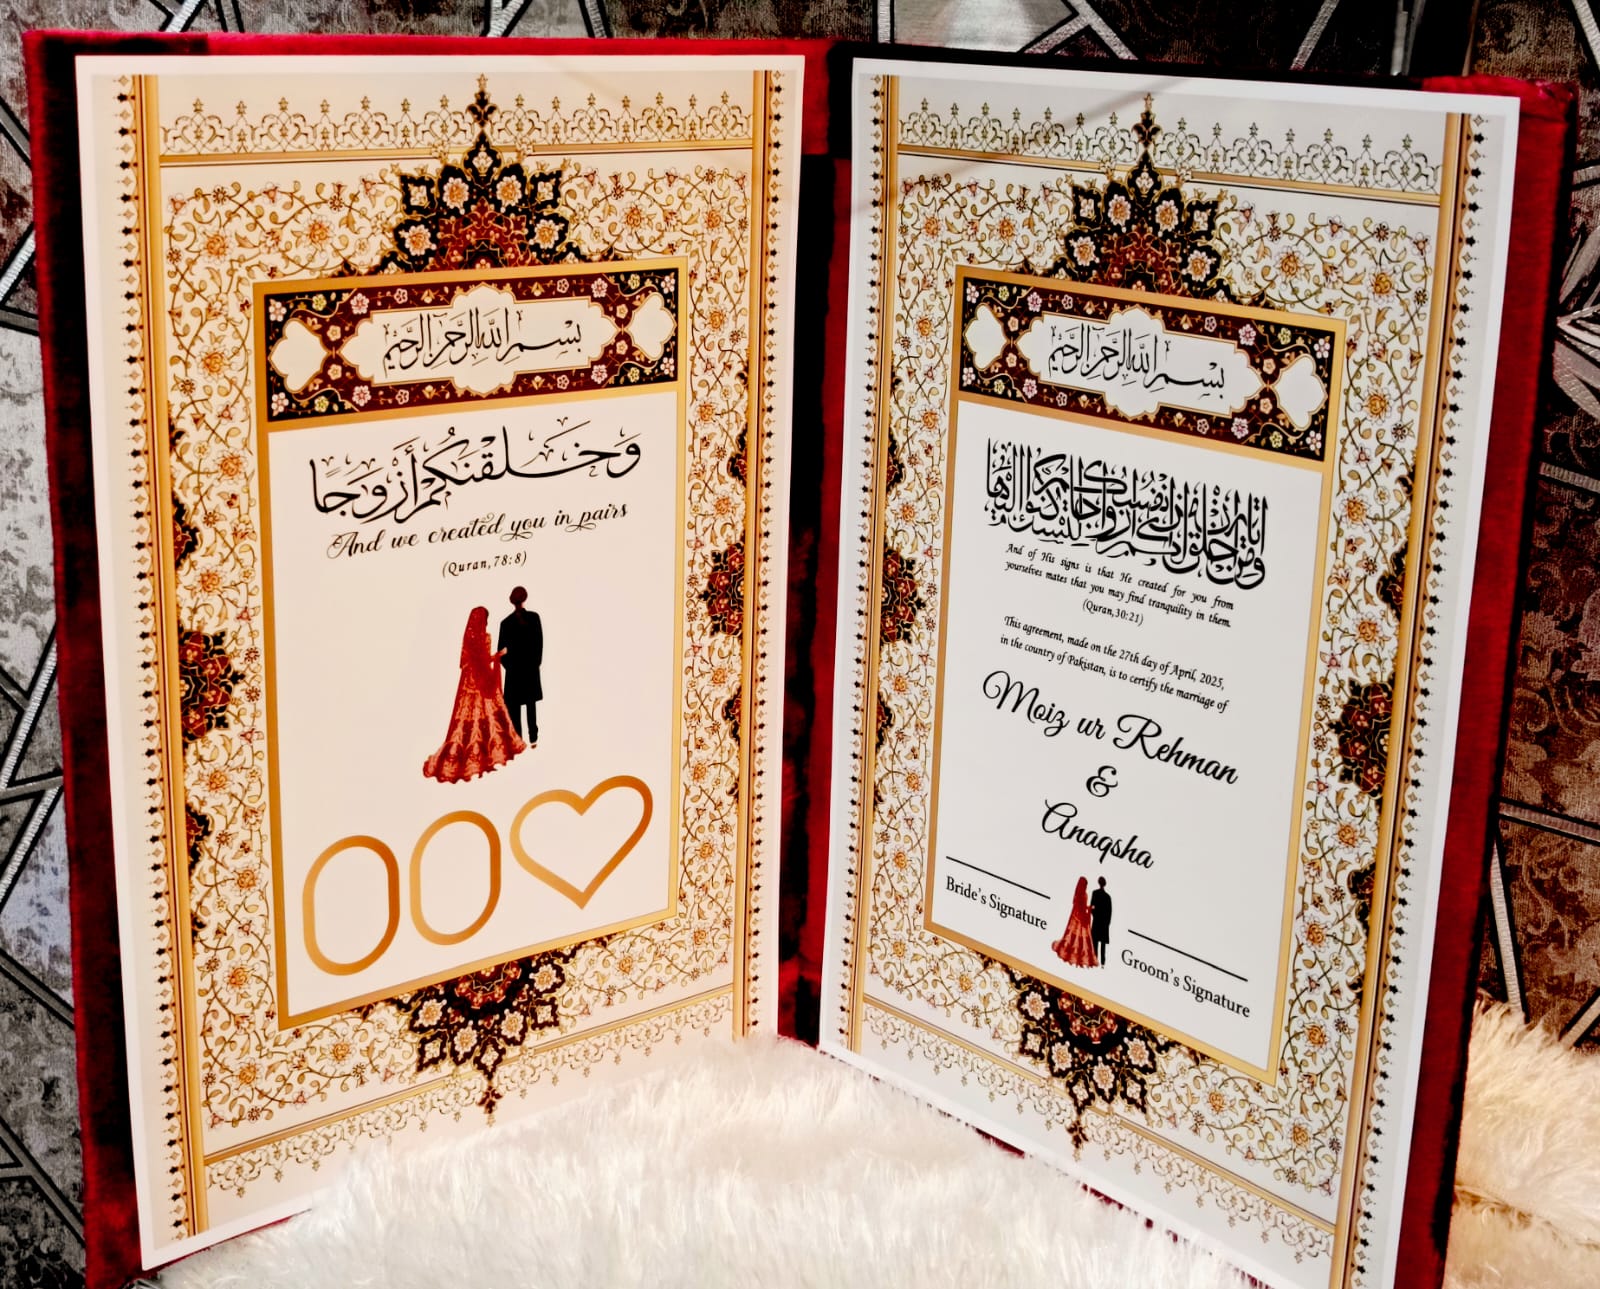 بِسْمِ اللَّهِ الرَّحْمَٰنِ الرَّحِيمِ
وَخَلَقْنَكُمْ أَزْوَجًا
And we created you in pairs
(Quran,78:8)
بِسْمِ اللَّهِ الرَّحْمَٰنِ الرَّحِيمِ
وَمِنْ آيَاتِهِ أَنْ خَلَقَ لَكُمْ مِنْ أَنْفُسِكُمْ أَزْوَاجًا لِتَسْكُنُوا إِلَيْهَا
And of His signs is that He created for you from
yourselves mates that you may find tranquility in them.
(Quran,30:21)
This agreement, made on the 27th day of April, 2025,
in the country of Pakistan, is to certify the marriage of
Moiz ur Rehman
&
Anaqsha
Bride's Signature
Groom's Signature